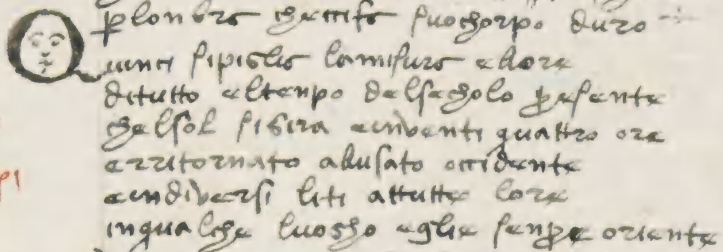 ꝑlonbra checcifa suochorpo duro
Quinci sipiglia lamisura ehore
ditutto eltenpo delsecholo ꝑesente
chelsol sigira einventi quattro ore
erritornato alusato occidente
eindiversi liti attutte lore
inqualche luogho eglie senpre oriente